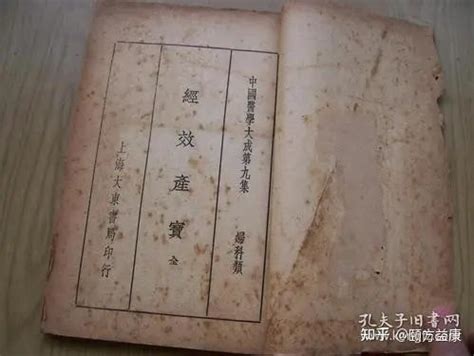 中國醫學大成第九集 婦科類
經效產寶 全
上海大東書局印行
孔夫子旧书网
知乎 @颐方益康